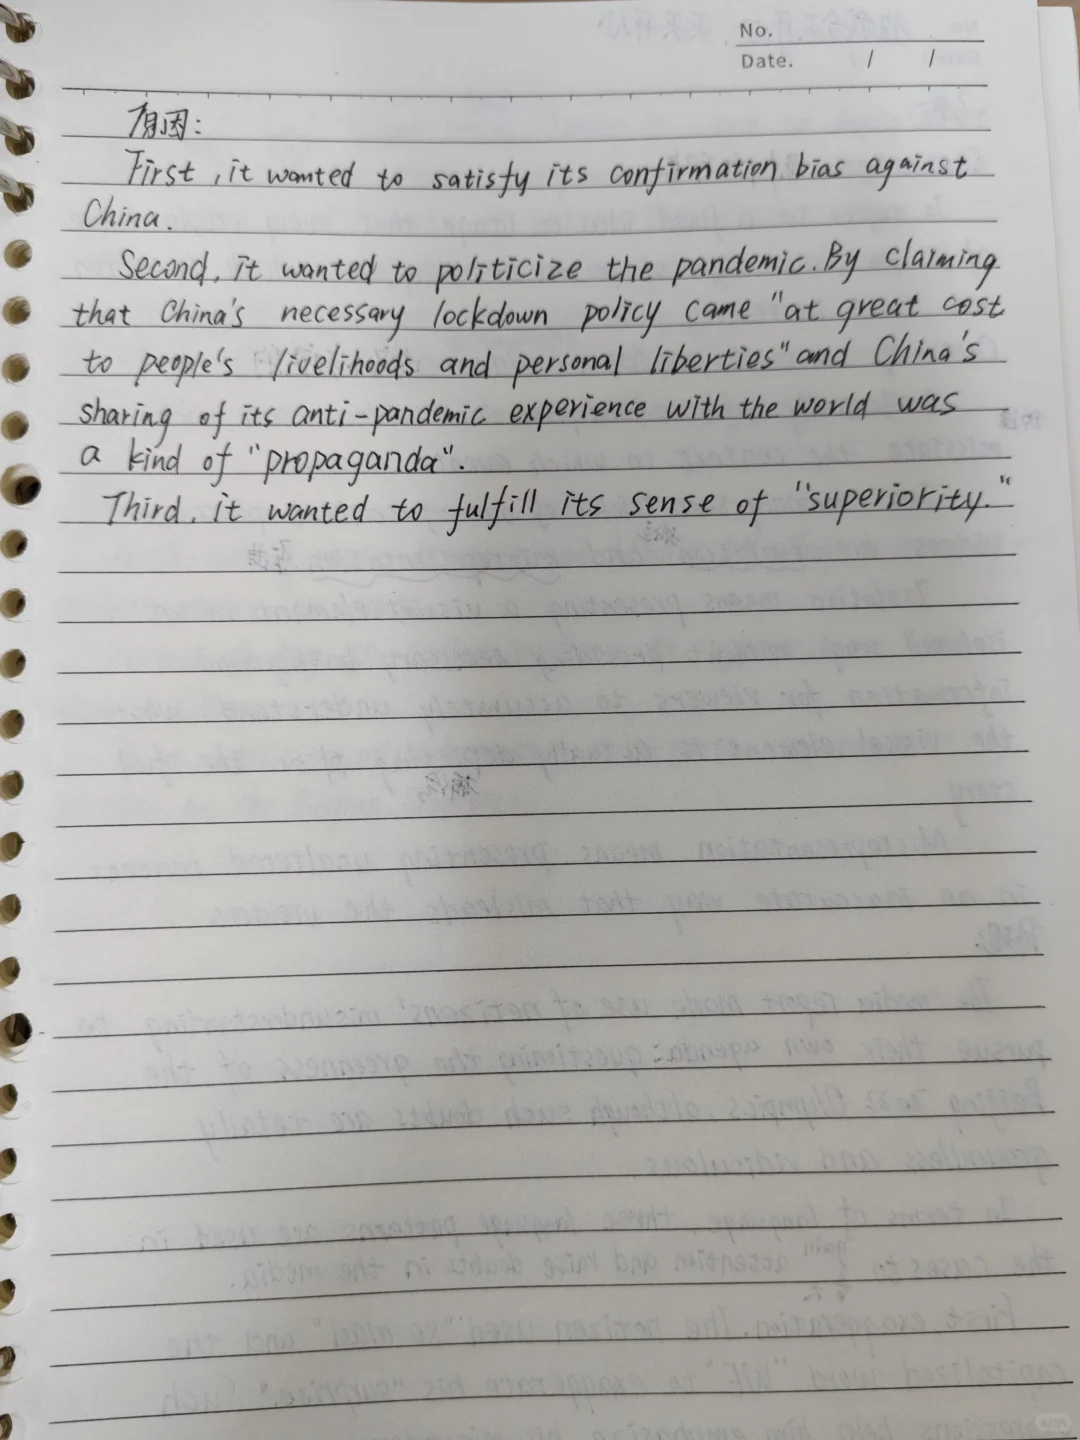 No.
Date. / /
原因:
First, it wanted to satisfy its confirmation bias against
China.
Second, it wanted to politicize the pandemic. By claiming
that China's necessary lockdown policy came "at great cost
to people's livelihoods and personal liberties" and China's
sharing of its anti-pandemic experience with the world was
a kind of "propaganda".
Third, it wanted to fulfill its sense of "superiority."